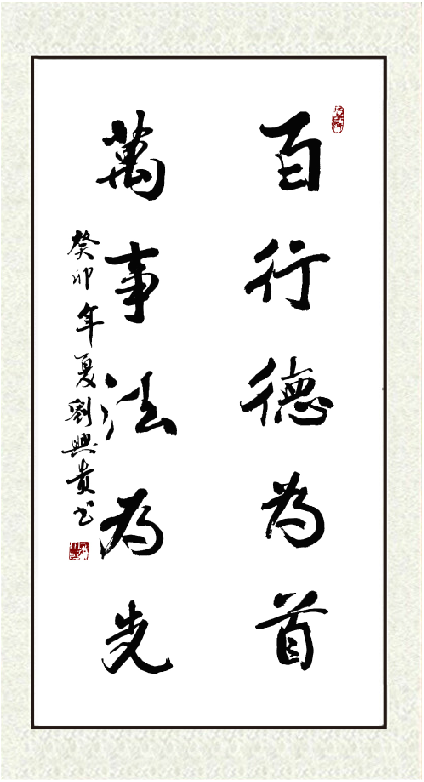 百行德為首
萬事法为先
癸卯年夏劉興貴书